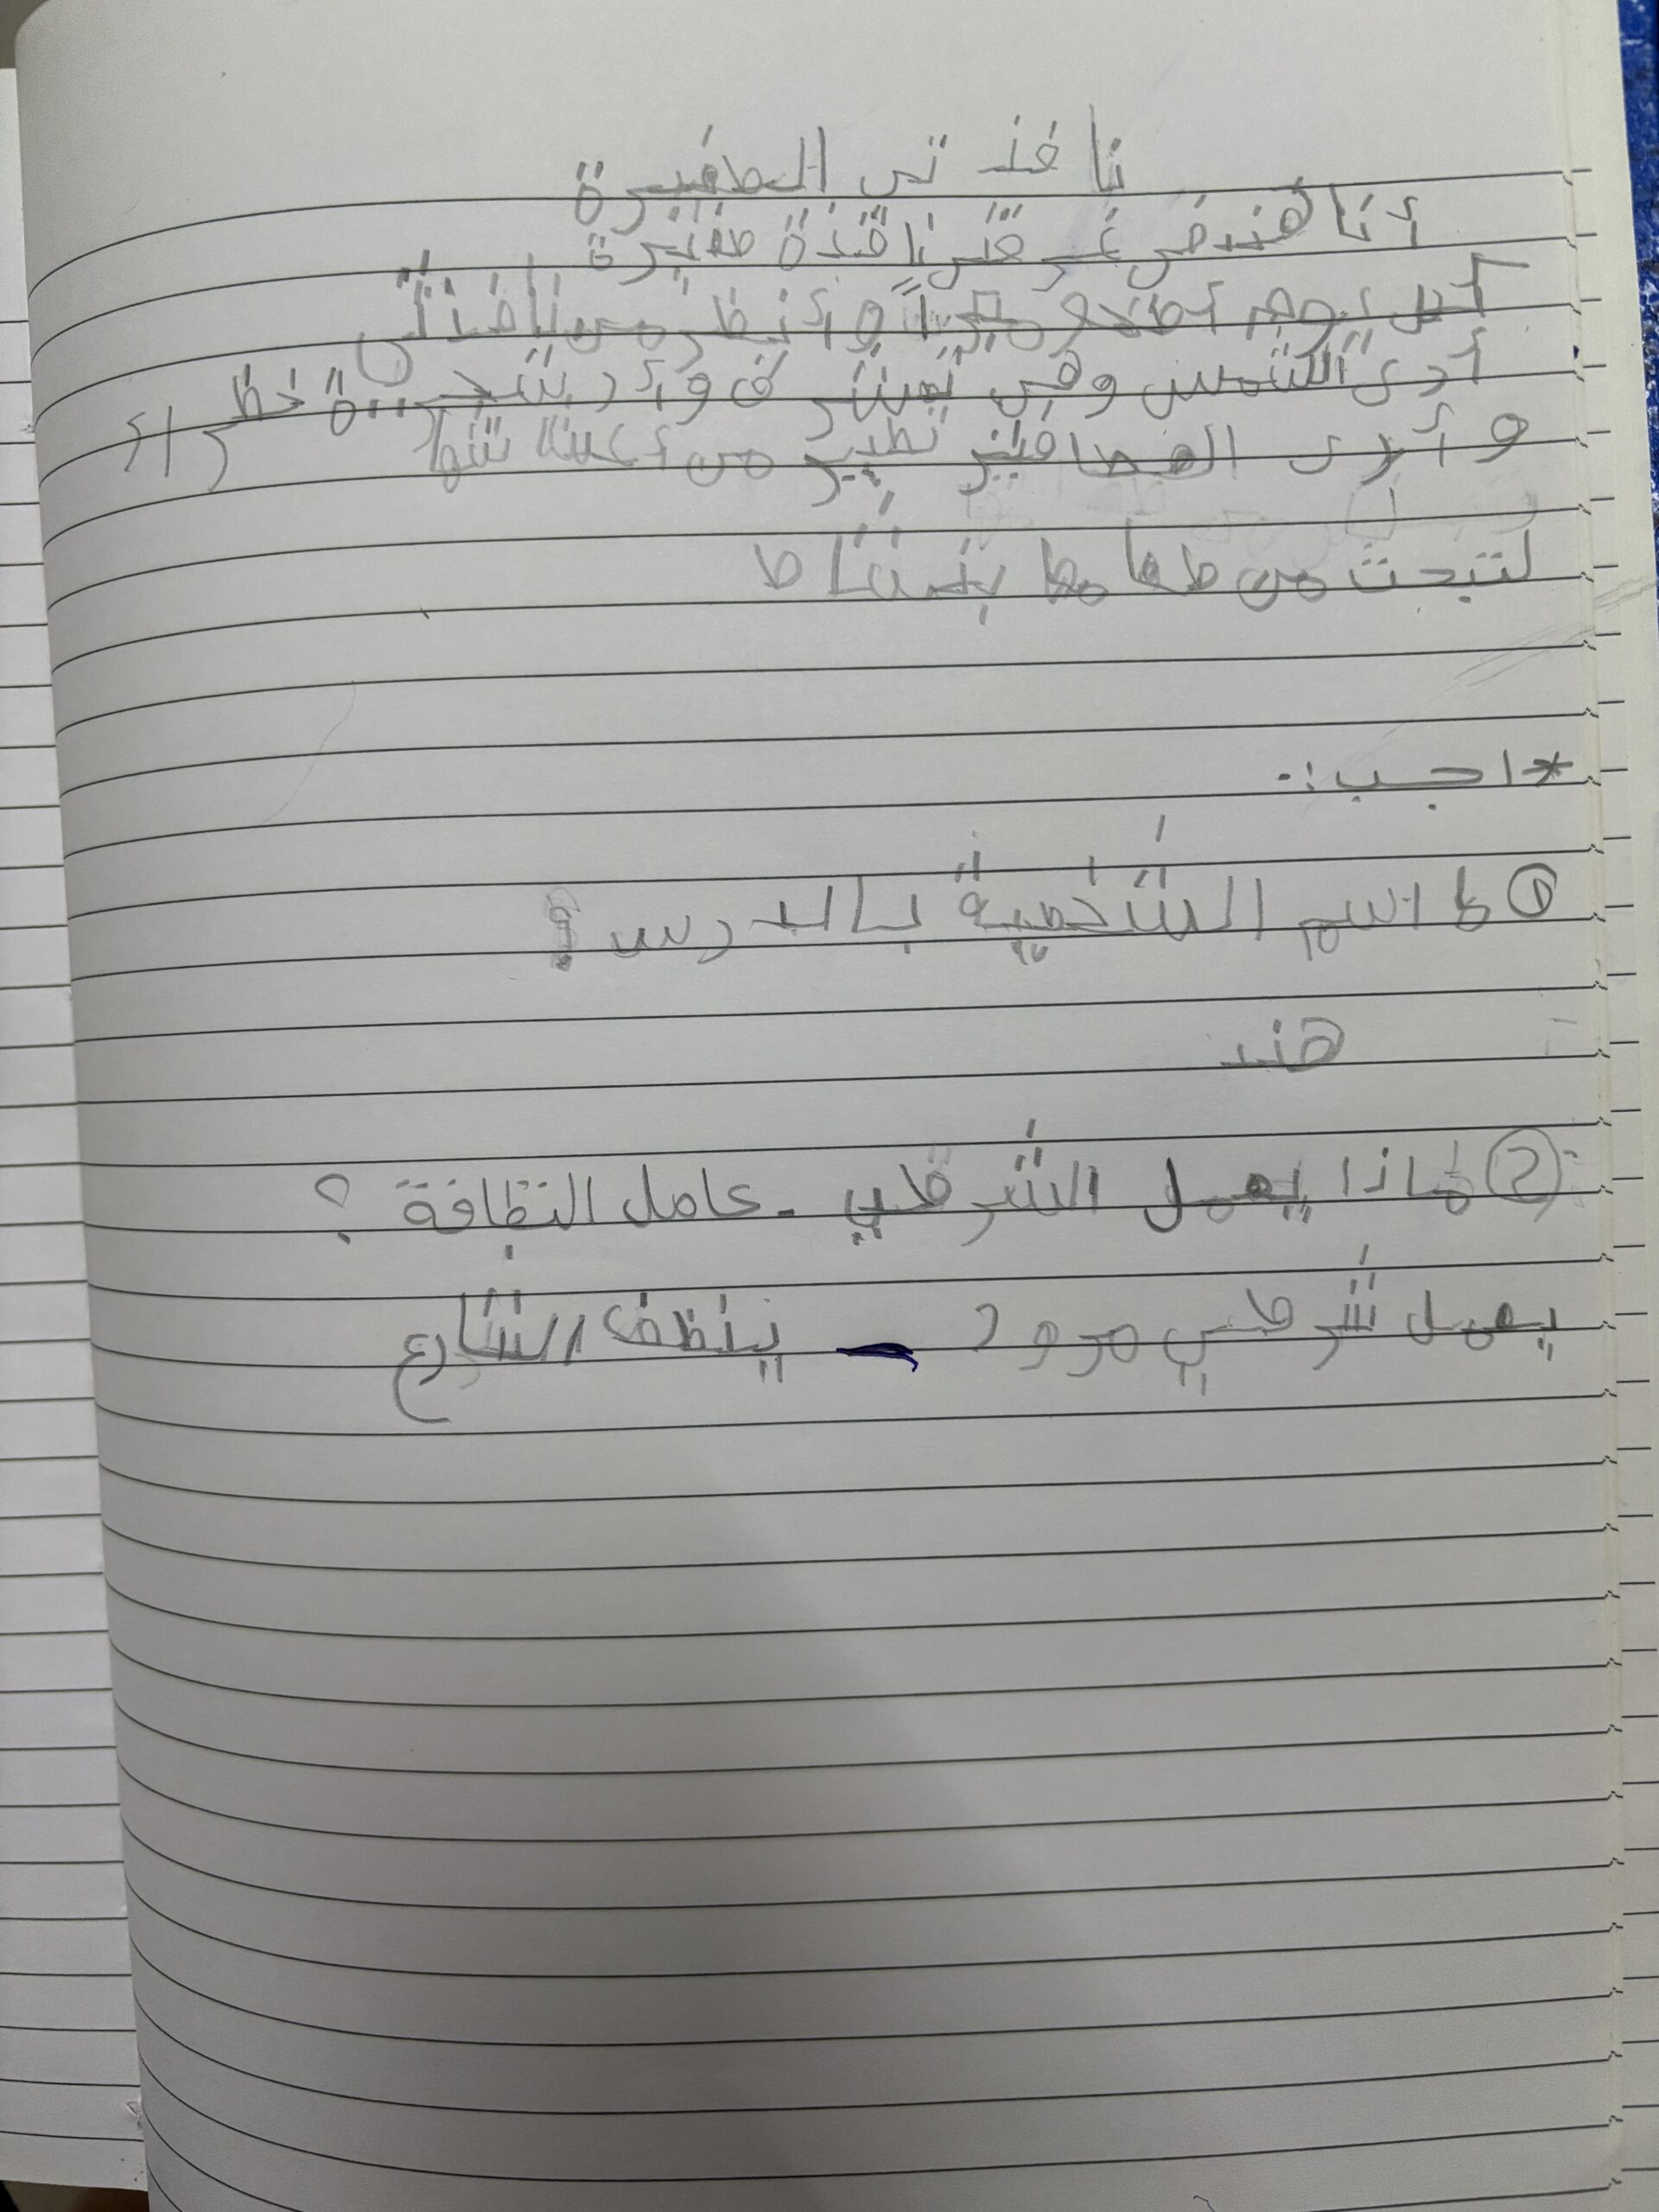 نافذتي الصغيرة
أنا هند في غرفتي نافذة صغيرة
كل يوم أصحو مبكراً وأنظر من نافذتي
أرى الشمس وهي تشرق وأرى شجرة خظراء
وأرى العصافير تطير من أعشاشها
لتبحث من طعامها بنشاط
*اجب:-
① ما اسم الشخصية بالدرس؟
هند
② ماذا يعمل الشرطي - عامل النظافة؟
يعمل شرطي مرور - ينظف الشارع